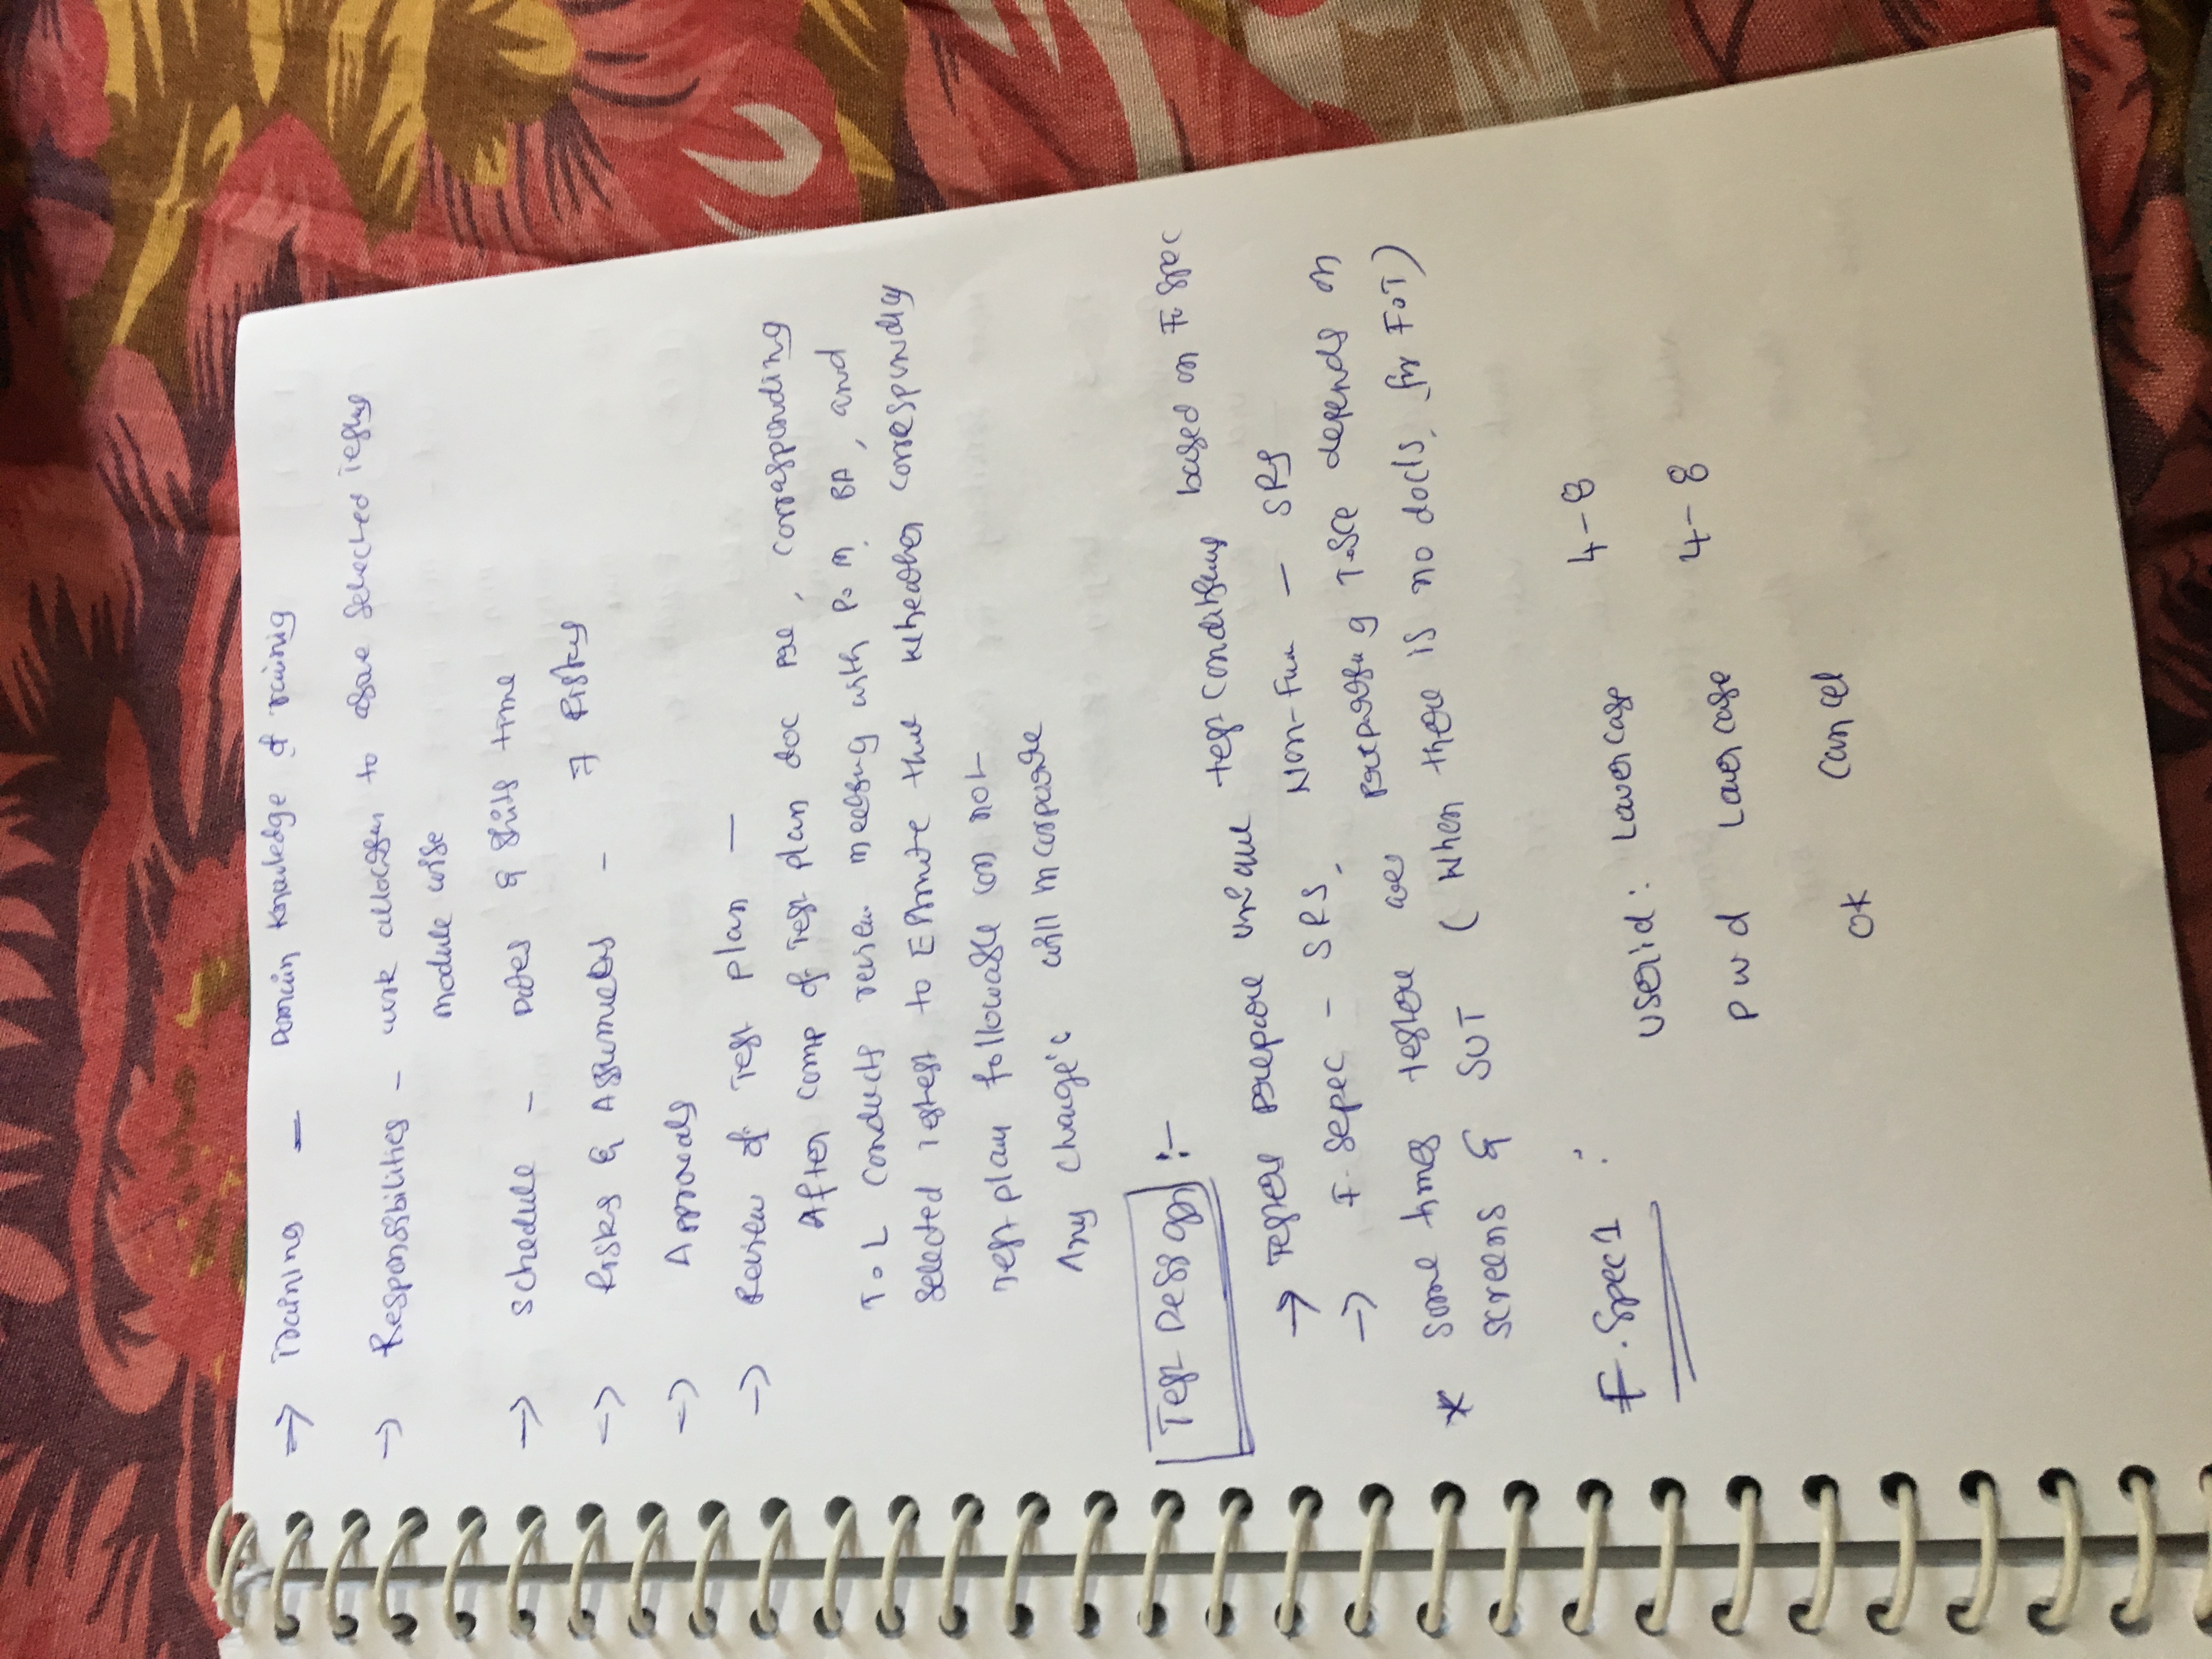 → Training — Domain Knowledge of raining
→ Responsibilities - work allocation to above selected Testers
module wise
→ Schedule - Dates & Shifts time
→ Risks & Assumections - 7 Risks
→ Approvals
→ Review of Test plan —
After comp of Test plan doc pre, corresponding
T.L conducts review meeting with P.M, BA, and
selected Testers to Estimate that wheather corresponding
Test plan followable or not
Any change's will incorporate
Test Design :-
→ Testers prepare unique test conditions based on F.Spec
→ F.Sepec - SRS, Non-Fun — SRS
* Some times testers are preparing T.Sce depends on
screens & SUT (When there is no docts, for F.T)
F.Spec1 :
userid: Lowercase 4-8
pwd Lowercase 4-8
OK Cancel